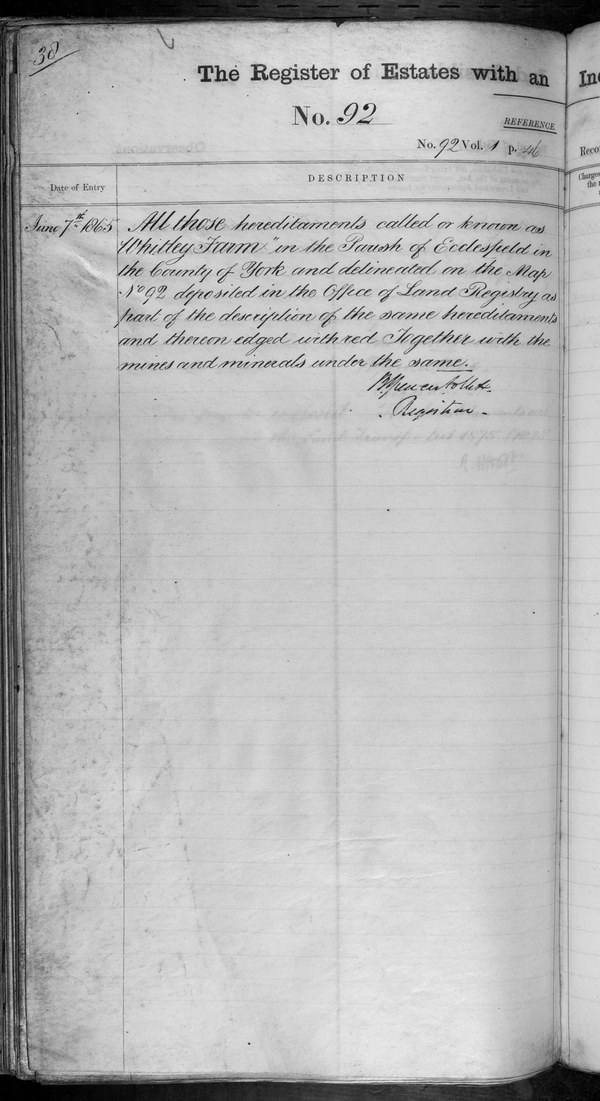 38
The Register of Estates with an
No. 92
REFERENCE
No. 92 Vol. 1 p. 46
Date of Entry
DESCRIPTION
June 7th 1865
All those hereditaments called or known as
"Whitley Farm" in the Parish of Ecclesfield in
the County of York and delineated on the Map
No 92 deposited in the Office of Land Registry as
part of the description of the same hereditaments
and thereon edged with red Together with the
mines and minerals under the same.
Registrar